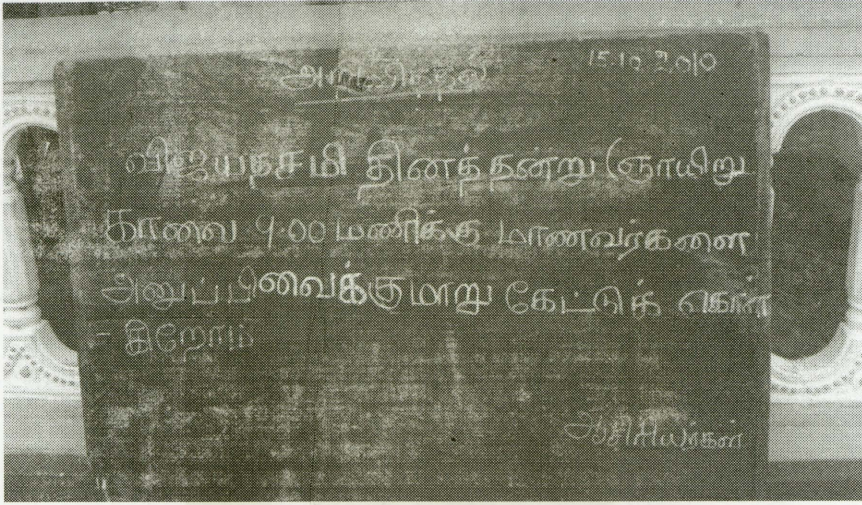 அறிவித்தல் 15.10.2010
விஜயதசமி தினத்தன்று (ஞாயிறு
காலை 9.00 மணிக்கு மாணவர்களை
அனுப்பிவைக்குமாறு கேட்டுக் கொள்
- கிறோம்
ஆசிரியர்கள்